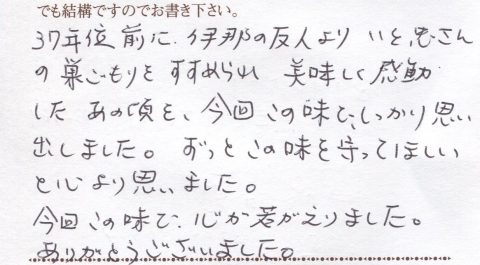 でも結構ですのでお書き下さい。
37年位前に、伊那の友人より いと忠さん
の巣ごもりを すすめられ 美味しく感動
した あの頃を、今回この味で、しっかり思い
出しました。 ずっと この味を守ってほしい
と心より思いました。
今回この味で、心が若がえりました。
ありがとうございました。